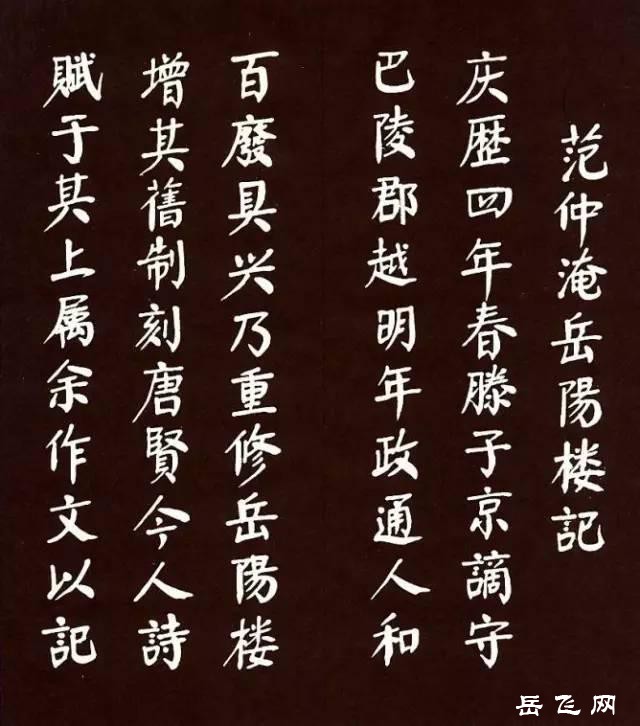 范仲淹岳陽楼記
庆歷四年春滕子京謫守
巴陵郡越明年政通人和
百廢具兴乃重修岳陽楼
增其舊制刻唐賢今人詩
賦于其上属余作文以記
岳飞网